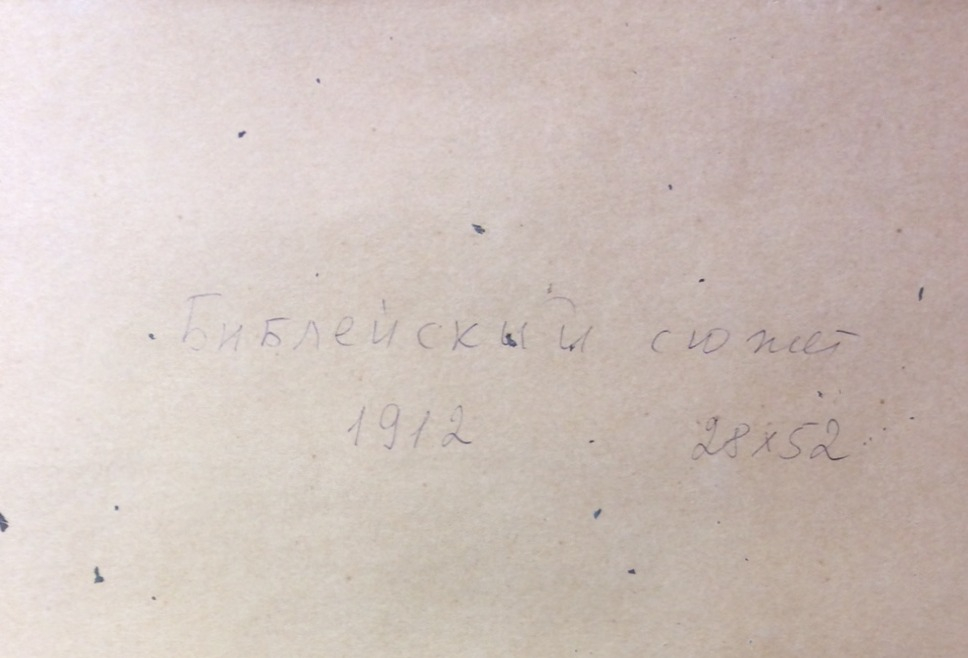 Библейский сюжет
1912 28x52